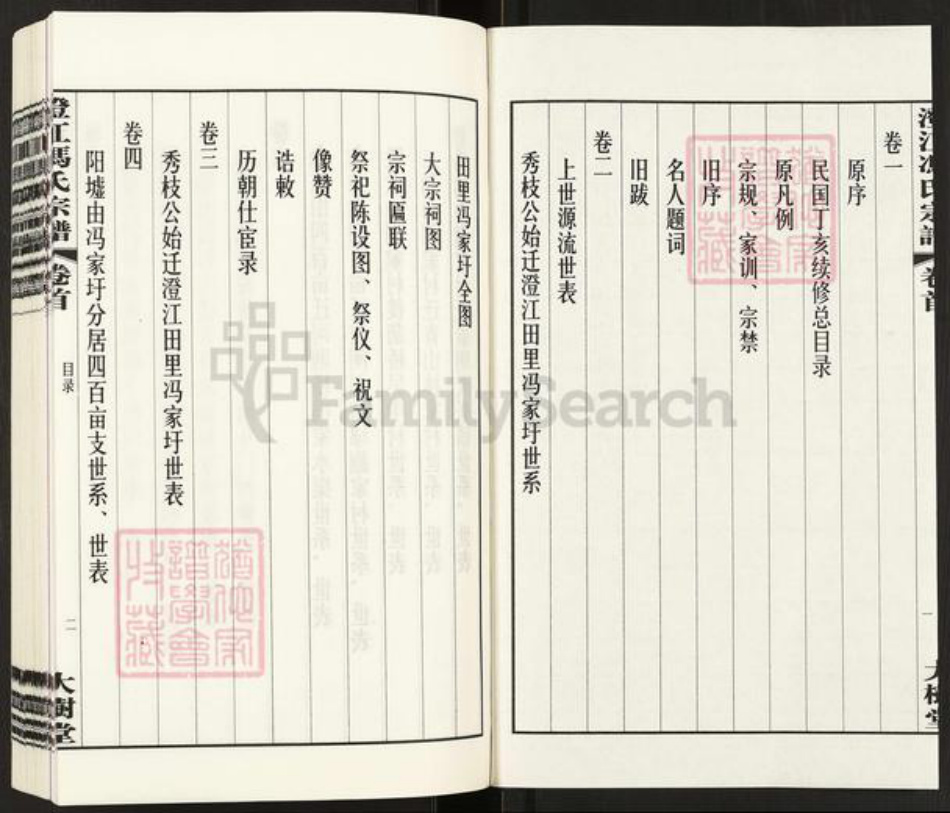 澄江馮氏宗譜
卷首
一
大樹堂
卷一
原序
民国丁亥续修总目录
原凡例
宗规、家训、宗禁
旧序
名人题词
旧跋
卷二
上世源流世表
秀枝公始迁澄江田里冯家圩世系
田里冯家圩全图
大宗祠图
宗祠匾联
祭祀陈设图、祭仪、祝文
像赞
诰敕
历朝仕宦录
卷三
秀枝公始迁澄江田里冯家圩世表
卷四
阳墟由冯家圩分居四百亩支世系、世表
澄江馮氏宗譜
卷首
目录
二
大樹堂
FamilySearch